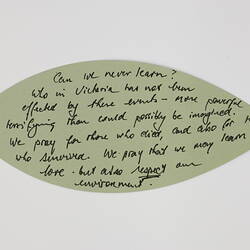 Can we never learn?
Who in Victoria has not been
effected by these events - more powerful
terrifying than could possibly be imagined.
We pray for those who died, and also for
who survived. We pray that we may learn
love - but also respect our
environment.